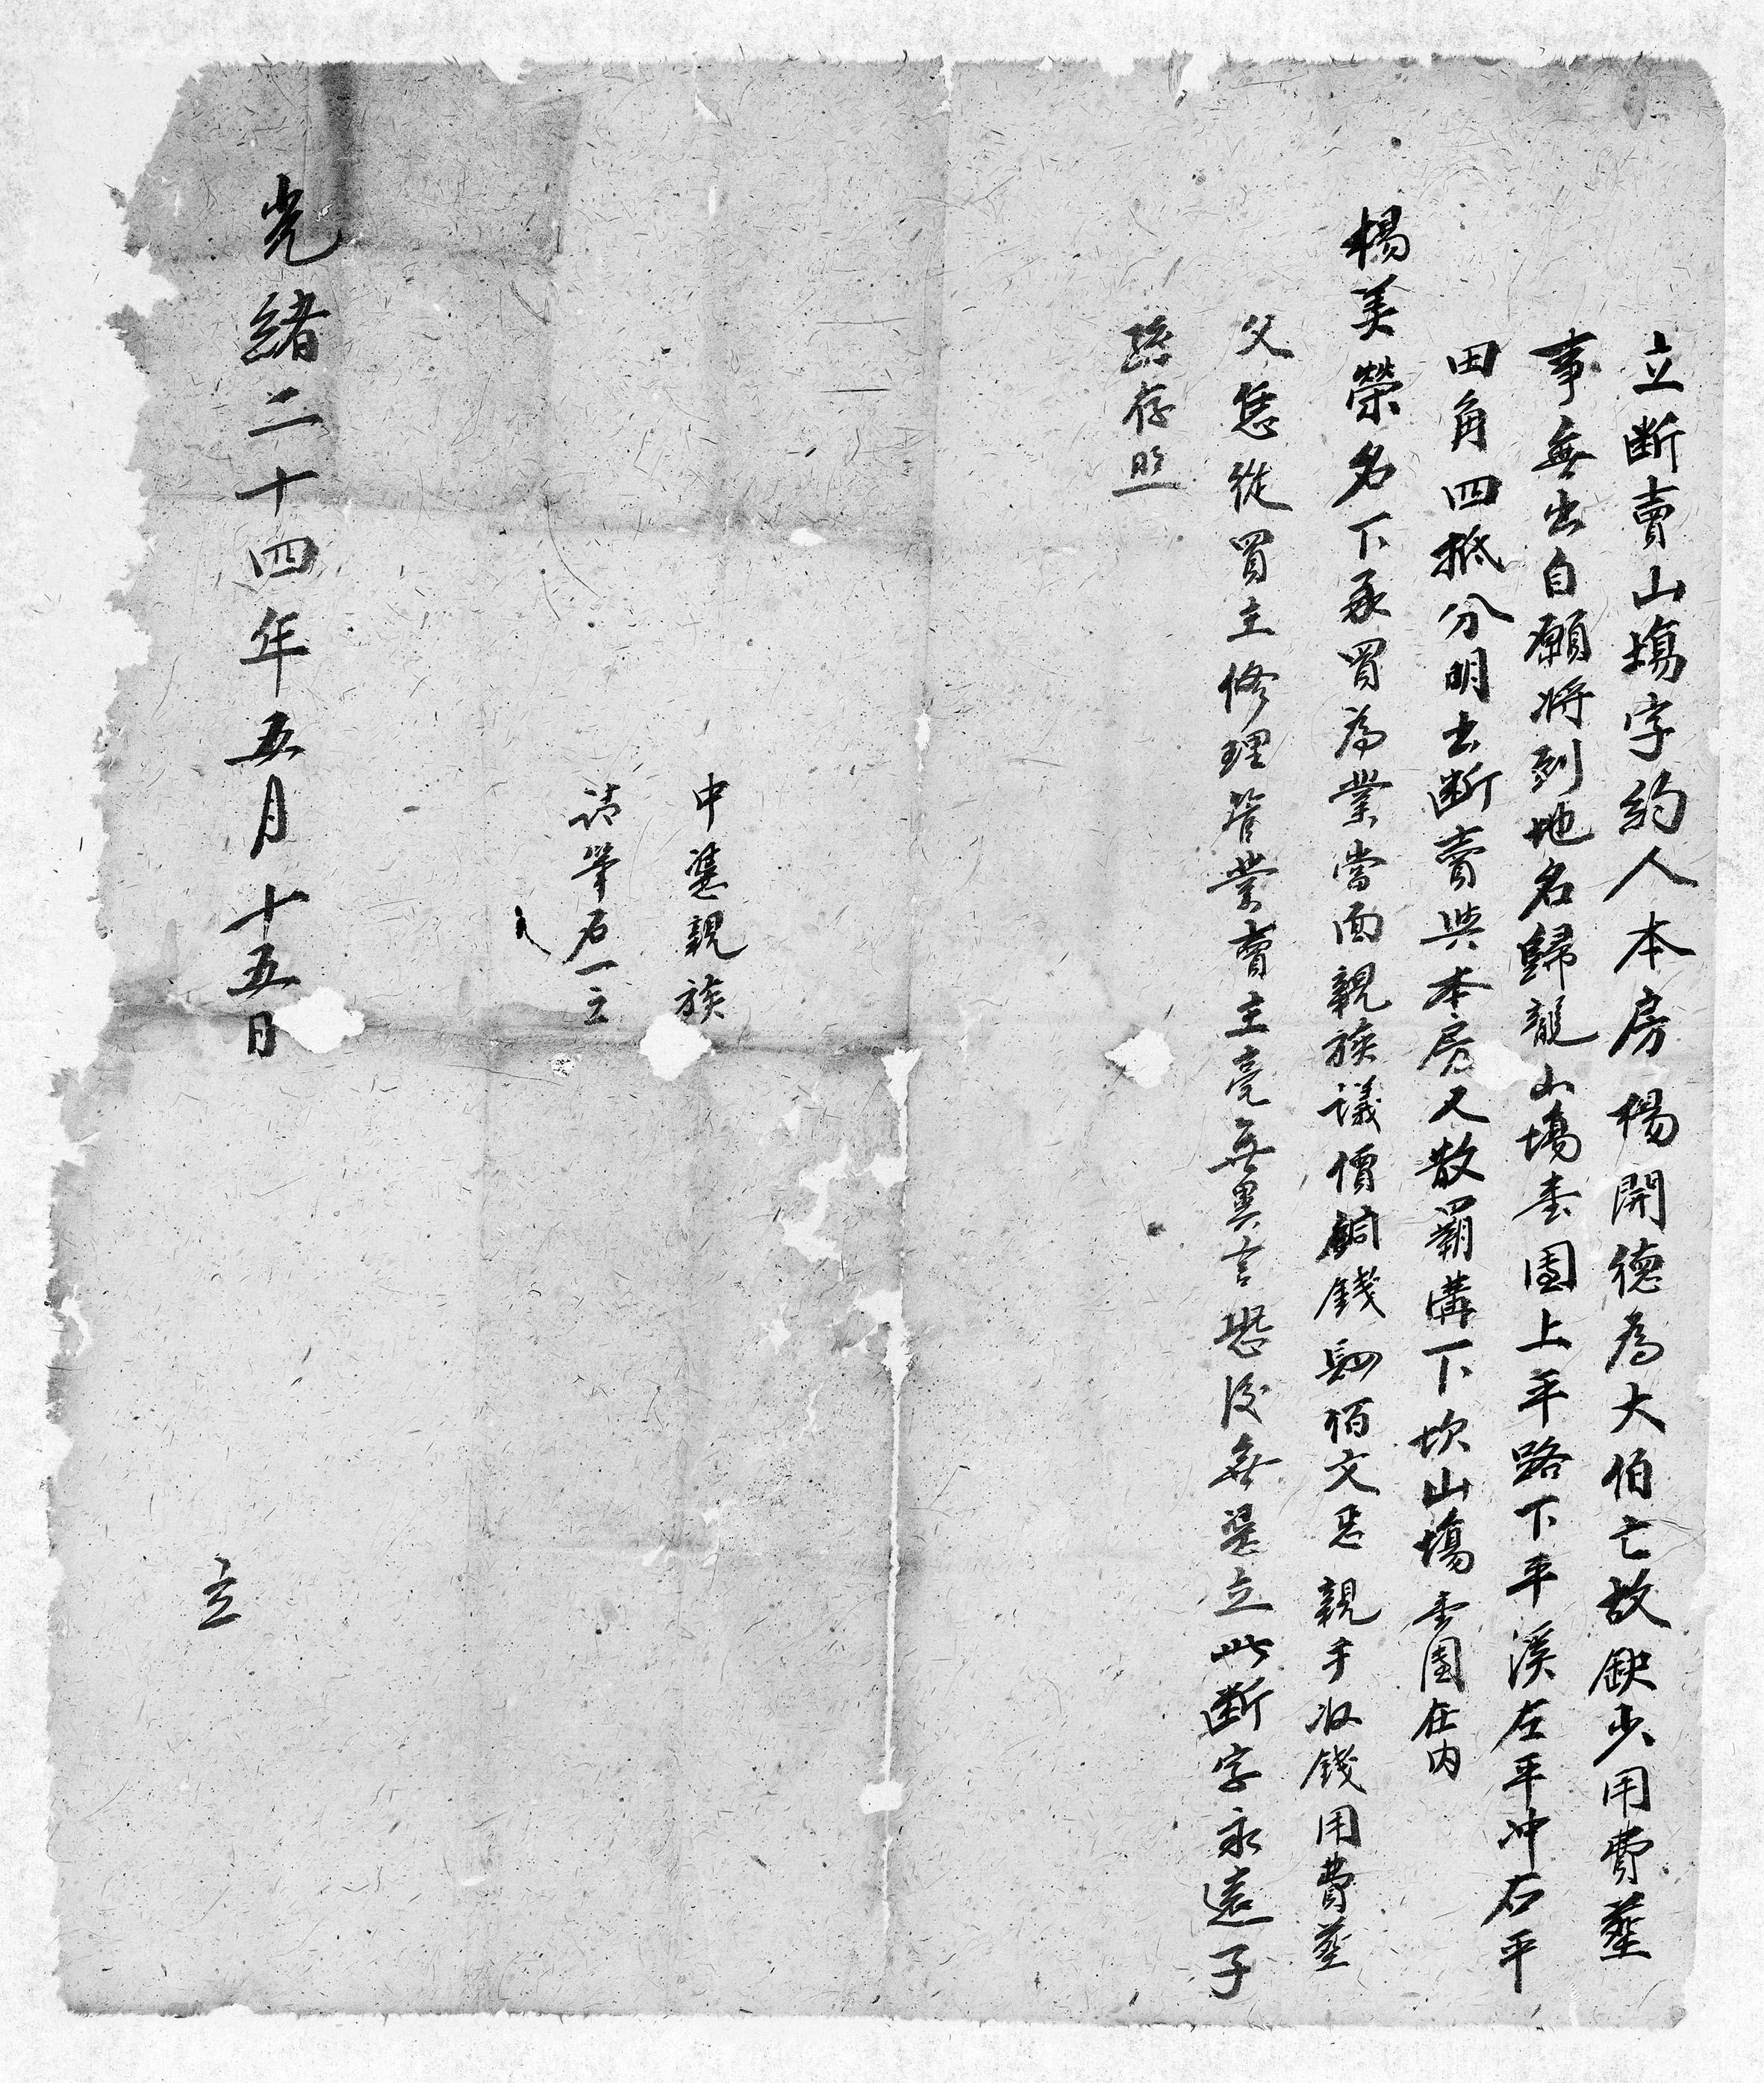 立断賣山塲字約人本房楊開德為大伯亡故缺少用費塟
事無出自願將到地名歸龍山塲壹團上平路下平溪左平冲右平
田角四抵分明出断賣與本房又散罱溝下坎山塲壹團在内
楊美榮名下承買為業當面親族議價銅錢肆佰文足親手收錢用費塟
父恁從買主修理管業賣主毫無異言恐後無憑立此断字永遠子
孫存照
中憑親族
請筆石一立
光緒二十四年五月十五日
立